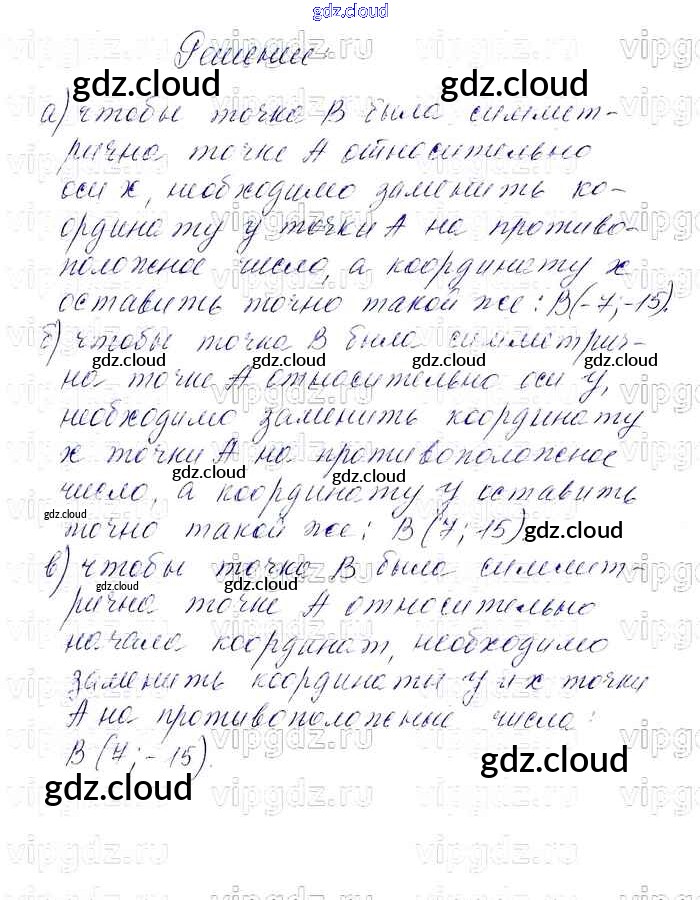 gdz.cloud
Решение
gdz.cloud gdz.cloud
а) чтобы точка В была симмет-
рична точке А относительно
оси х, необходимо заменить ко-
ординату у точки А на противо-
положное число, а координату х
оставить точно такой же: В(-7;-15).
б) чтобы точка В была симметрич-
gdz.cloud gdz.cloud gdz.cloud
на точке А относительно оси у,
необходимо заменить координату
х точки А на противоположное
gdz.cloud gdz.cloud
число, а координату у оставить
gdz.cloud
точно такой же: В(7; 15)
gdz.cloud
в) чтобы точка В была симмет-
gdz.cloud gdz.cloud
рична точке А относительно
начала координат, необходимо
заменить координаты у и х точки
А на противоположные числа:
В(7;-15).
gdz.cloud
gdz.cloud